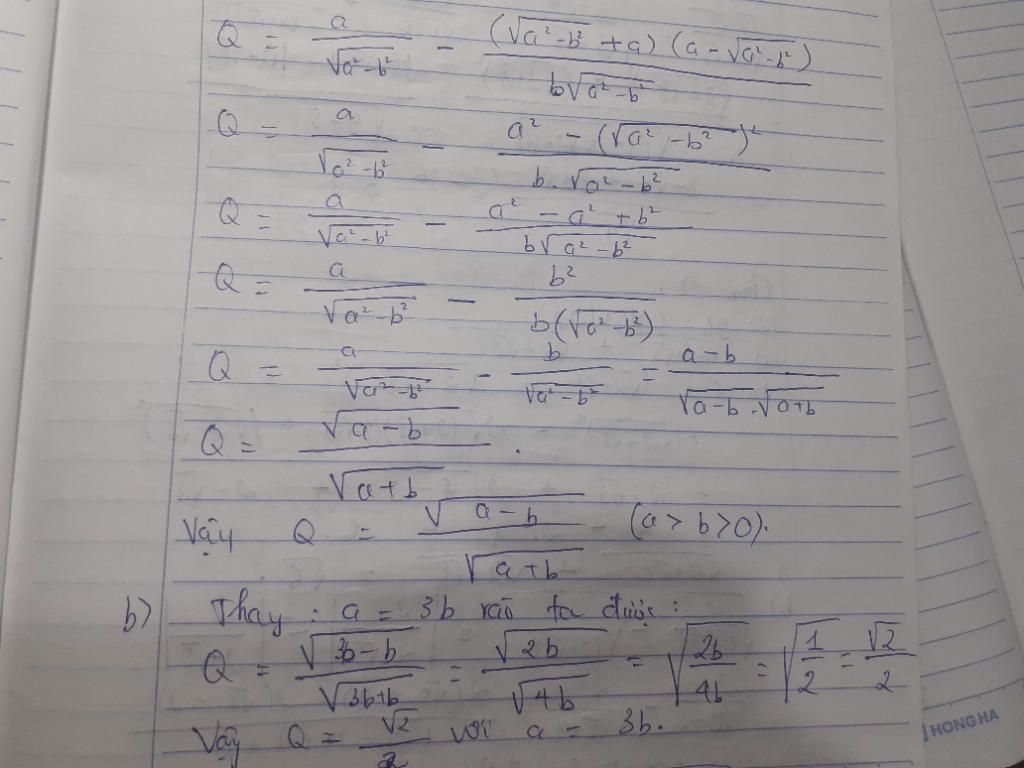 Q = a/√(a²-b²) - (√(a²-b²) + a)(a - √(a²-b²))/(b√(a²-b²))
Q = a/√(a²-b²) - (a² - (√(a²-b²))²)/(b.√(a²-b²))
Q = a/√(a²-b²) - (a² - a² + b²)/(b√(a²-b²))
Q = a/√(a²-b²) - b²/(b(√(a²-b²)))
Q = a/√(a²-b²) - b/√(a²-b²) = (a-b)/(√(a-b).√(a+b))
Q = √(a-b)/√(a+b).
Vậy Q = √(a-b)/√(a+b) (a > b > 0).
b) Thay : a = 3b vào ta được :
Q = √(3b-b)/√(3b+b) = √(2b)/√(4b) = √(2b/4b) = √(1/2) = √2/2
Vậy Q = √2/2 với a = 3b.
HONG HA